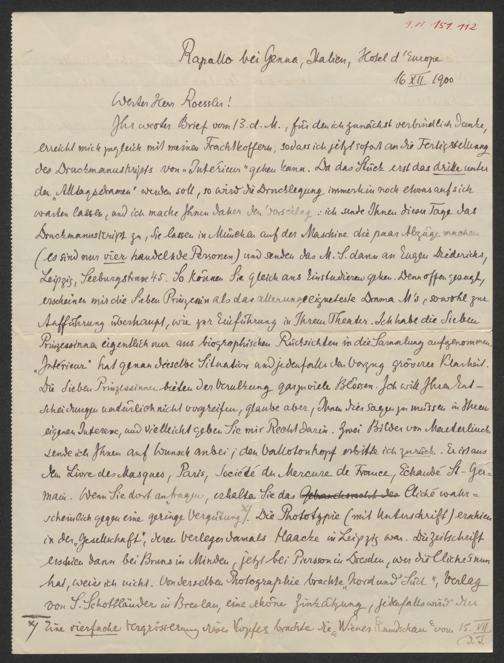 I.N. 151.112
Rapallo bei Genua, Italien, Hotel d'Europe
16 XII 1900
Werter Herr Roessler!
Ihr werter Brief vom 13. d. M., für den ich zunächst verbindlich danke,
erreicht mich zugleich mit meinen Frachtkoffern, sodass ich jetzt sofort an die Fertigstellung
des Druckmanuskripts von „Interieur" gehen kann. Da das Stück erst das dritte unter
den „Alltagsdramen" werden soll, so wird die Drucklegung immerhin noch etwas auf sich
warten lassen, und ich mache Ihnen daher den Vorschlag: ich sende Ihnen dieser Tage das
Druckmanuskript zu, Sie lassen in München auf der Maschine die paar Abzüge machen
(es sind nur vier handelnde Personen) und senden das M.S. dann an Eugen Diederichs,
Leipzig, Seeburgstrasse 45. So können Sie gleich ans Einstudieren gehen. Denn offen gesagt,
erscheinen mir die Sieben Prinzessinnen als das allerungeeigneteste Drama M's, sowohl zur
Aufführung überhaupt, wie zur Einführung in Ihrem Theater. Ich habe die Sieben
Prinzessinnen eigentlich nur aus biographischen Rücksichten in die Sammlung aufgenommen.
„Interieur" hat genau dieselbe Situation und jedenfalls den Vorzug grösserer Klarheit.
Die Sieben Prinzessinnen bieten der Verulkung gar zu viele Blössen. Ich will Ihren Ent-
scheidungen natürlich nicht vorgreifen, glaube aber, Ihnen dies sagen zu müssen in Ihrem
eigenen Interesse, und vielleicht geben Sie mir Recht darin. Zwei Bilder von Maeterlinck
sende ich Ihnen auf Wunsch anbei; den Vallotonkopf erbitte ich zurück. Er ist aus
den Livre des Masques, Paris, Société du Mercure de France, Échaudé St-Ger-
main. Wenn Sie dort anfragen, erhalten Sie das Cliché wahr-
scheinlich gegen eine geringe Vergütung x). Die Phototypie (mit Unterschrift) erschien
in der „Gesellschaft", deren Verleger damals Haacke in Leipzig war. Die Zeitschrift
erschien dann bei Bruns in Minden, jetzt bei Pierson in Dresden, wer die Clichés nun
hat, weiss ich nicht. Von derselben Photographie brachte „Nord und Süd", Verlag
von S. Schottländer in Breslau, eine schöne Zinkätzung, jedenfalls wird der
x) Eine vierfache Vergrösserung des Kopfes brachte die „Wiener Rundschau" vom 15. VII